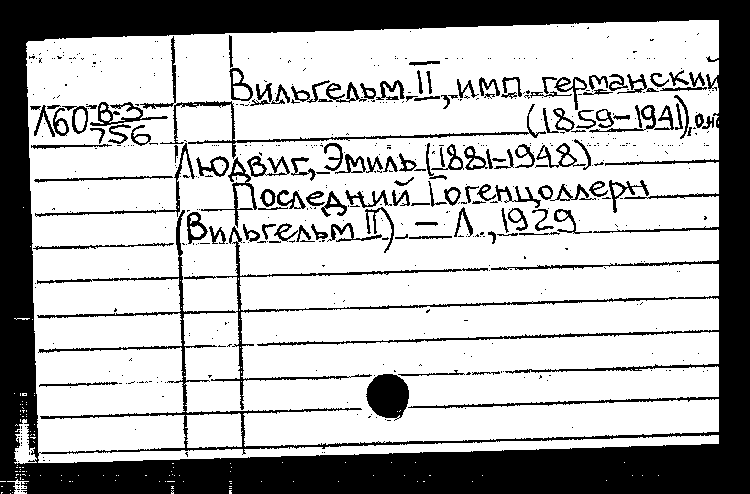 Вильгельм II, имп. германский
(1859-1941), о нё
Л60 В-3
756
Людвиг, Эмиль (1881-1948)
Последний Гогенцоллерн
(Вильгельм II) – Л., 1929